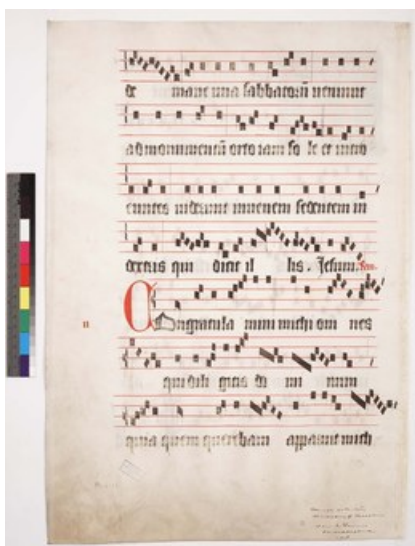 de mane una sabbatorū veniunt
ad monumentū orto iam so le et intro
euntes viderunt iuvenem sedentem in
dextris qui dicit il lis. Jesum.
Congratula mini michi om nes
qui dili gitis do mi num
quia quem querebam apparuit mich